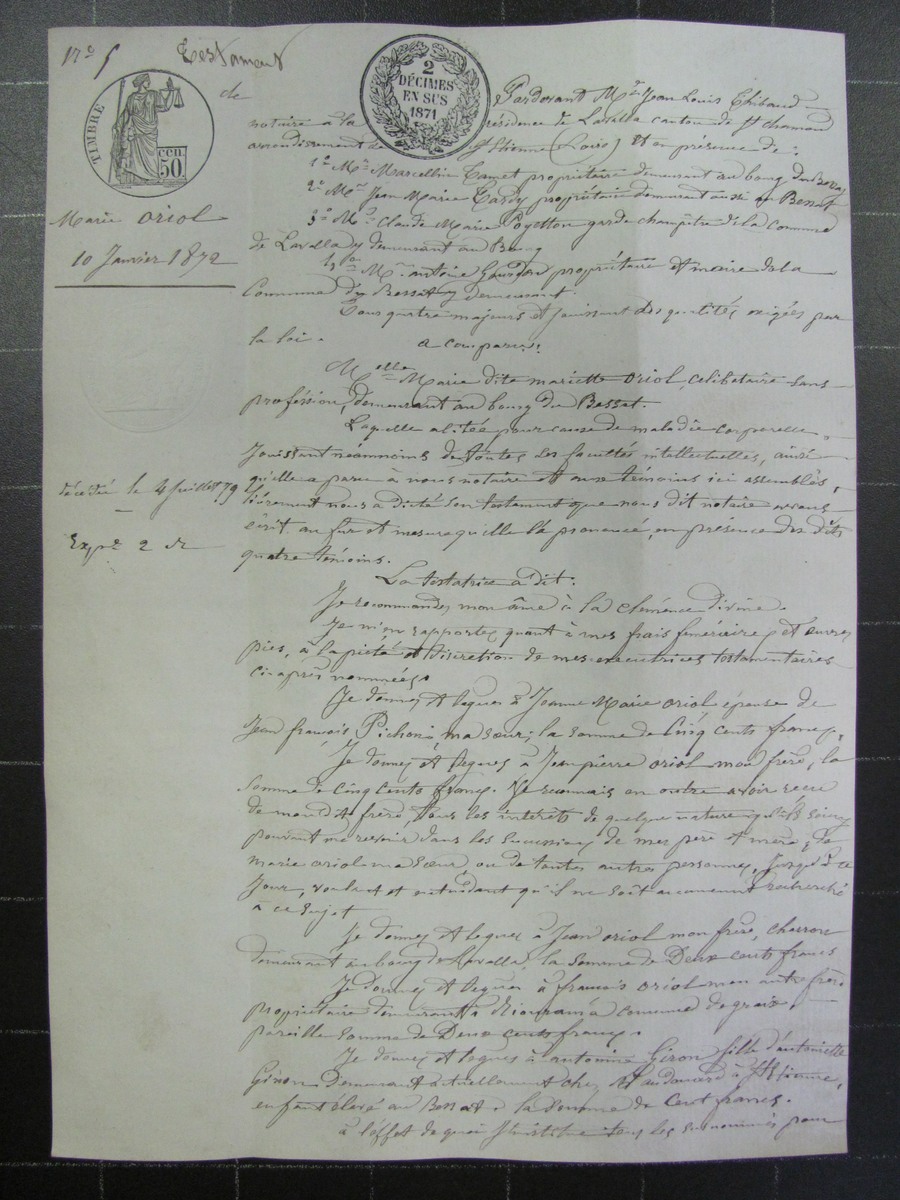 N° 5 Testament
de
TIMBRE
50 cen.
2
DÉCIMES
EN SUS
1871
Marie Oriol
10 Janvier 1872
décédée le 4 Juillet 79
Exp. 2 R
Pardevant Me Jean Louis Thibaud
notaire à la résidence de Lavalla canton de St chamond
arrondissement de St Etienne (Loire) Et en présence de :
1° Mr Marcellin Tamet propriétaire demeurant au bourg du Bessat
2° Mr Jean Marie Tardy propriétaire demeurant aussi au Bessat
3° Mr Claude Marie Poyetton garde champêtre de la Commune
de Lavalla y demeurant au Bourg
Mr antoine Gourdon propriétaire et maire de la
Commune du Bessat y demeurant.
Tous quatre majeurs et jouissant des qualités exigées par
la loi.
a comparu :
Melle Marie dite mariette Oriol, célibataire sans
profession, demeurant au bourg du Bessat.
Laquelle alitée pour cause de maladie corporelle,
Jouissant néanmoins de toutes ses facultés intellectuelles, ainsi
qu'elle a paru à nous notaire et aux témoins ici assemblés,
librement nous a dicté son testament que nous dit notaire avons
écrit au fur et mesure qu'elle l'a prononcé, en présence des dits
quatre témoins.
La testatrice a dit :
Je recommande mon âme à la clémence divine.
Je m'en rapporte quant à mes frais funéraires et œuvres
pies, à la piété et discretion de mes executrices testamentaires
ci après nommées.
Je donne et legue à Jeanne Marie Oriol épouse de
Jean françois Pichon, ma sœur, la somme de Cinq cents francs.
Je donne et legue à Jean pierre Oriol mon frère, la
somme de cinq cents francs. Je reconnais en outre avoir reçu
de mon dit frère, tous les intérêts de quelque nature qu'ils soient
pouvant me revenir dans les successions de mes père et mère, de
marie oriol ma sœur, ou de toutes autres personnes, jusqu'à ce
Jour, voulant et entendant qu'il ne soit aucunement recherché
à ce sujet
Je donne et legue à Jean oriol mon frère, charron
demeurant au bourg de Lavalla, la somme de Deux cents francs
Je donne et legue à françois Oriol mon autre frère
propriétaire demeurant à commune de graix,
pareille somme de Deux cents francs.
Je donne et legue à antoinette Giron fille d'antoinette
Giron demeurant actuellement chez à St Etienne,
enfant élevé au Bessat, la somme de Cent francs.
à l'effet de quoi J'institue tous les susnommés pour